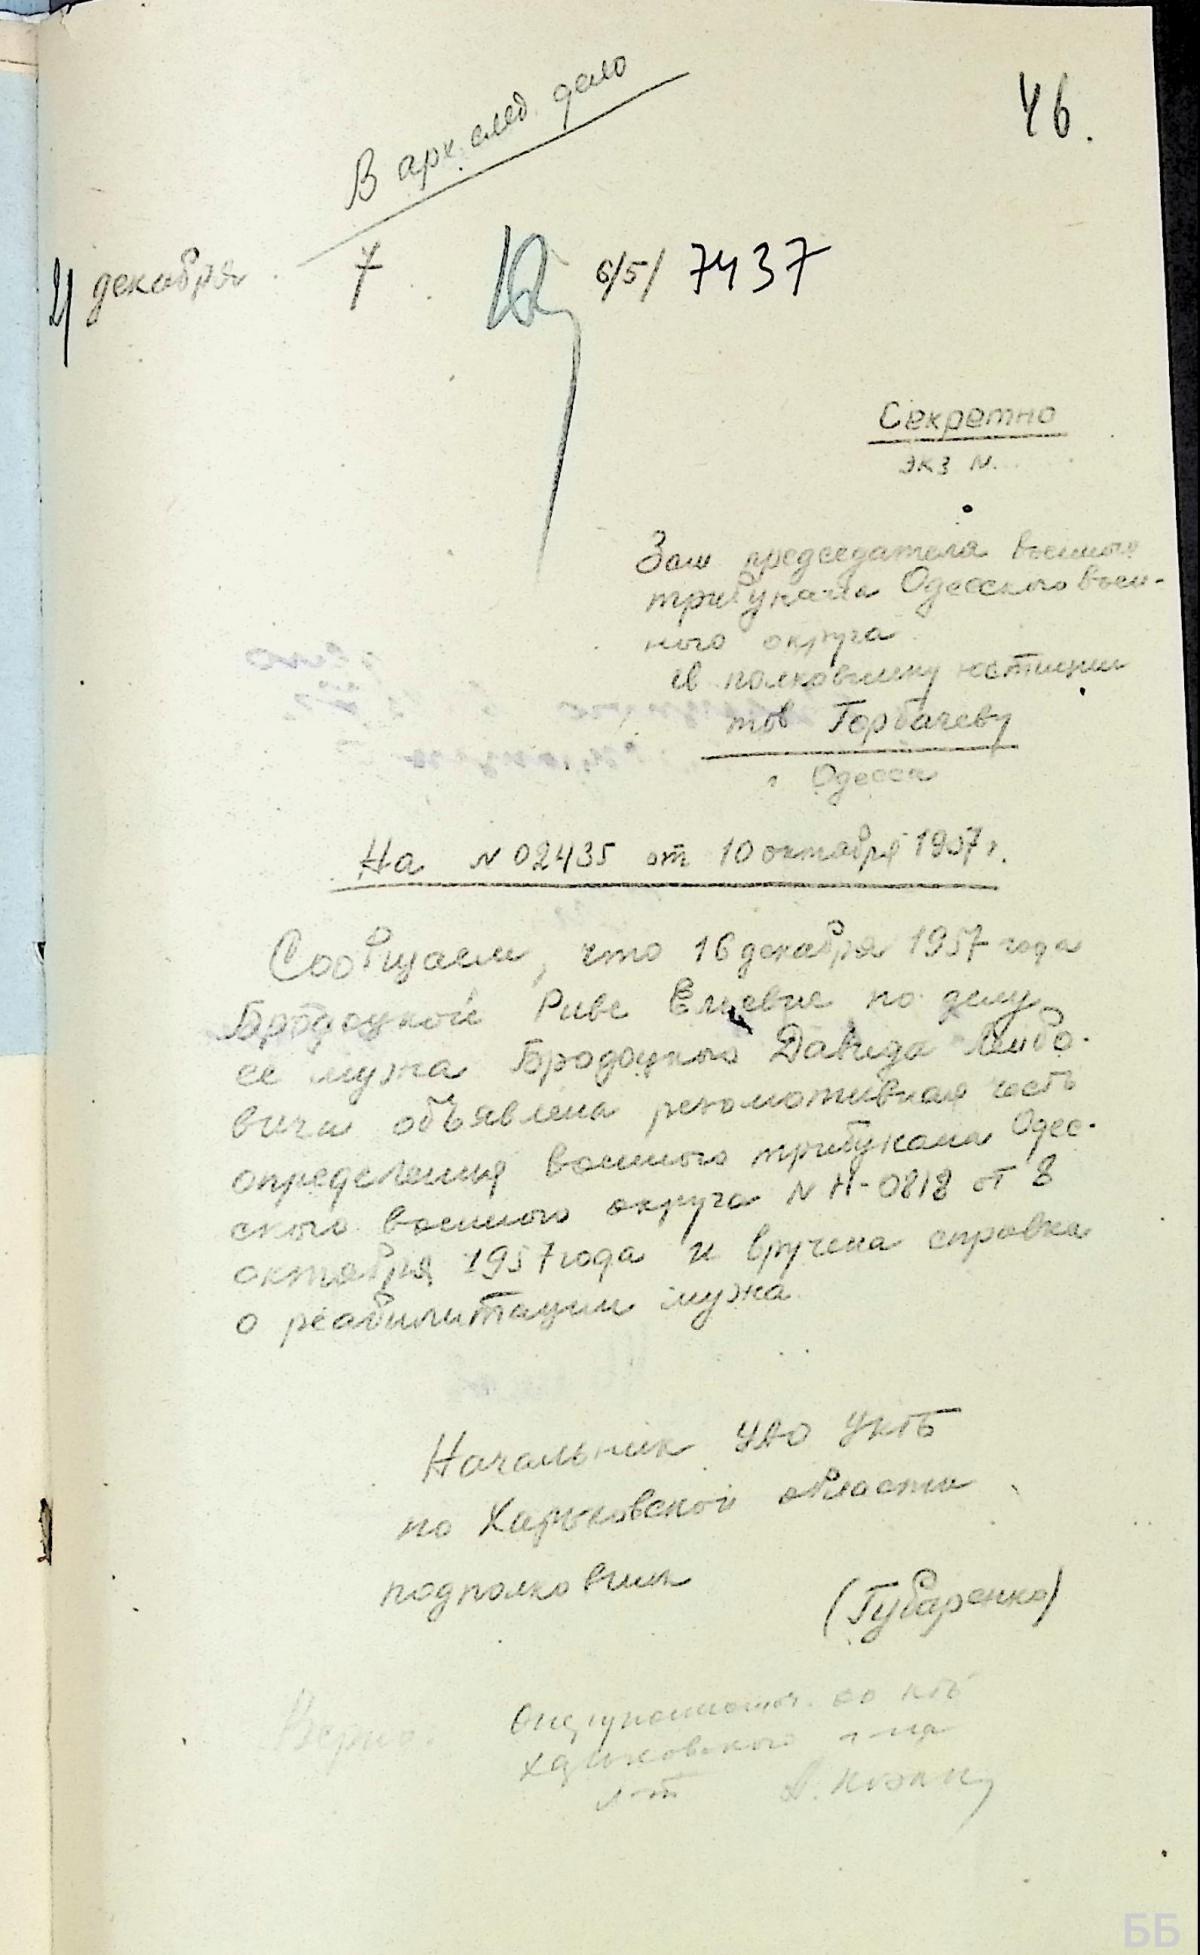 46.
В арх. след. дело
21 декабря 7 6/5/ 7437
Секретно
экз N.
Зам председателя военного
трибунала Одесского воен-
ного округа
полковнику юстиции
тов Горбачеву
г Одесса
На N 02435 от 10 октября 1957 г.
Сообщаем, что 16 декабря 1957 года
Бородоцкой Риве Елевне по делу
ее мужа Бородоцкого Давида Лейбо-
вича объявлена резолютивная часть
определения военного трибунала Одес-
ского военного округа N Н-0818 от 8
октября 1957 года и вручена справка
о реабилитации мужа.
Начальник УАО УКГБ
по Харьковской области
подполковник
(Губаренко)
Верно.
КГБ
л-т
ББ